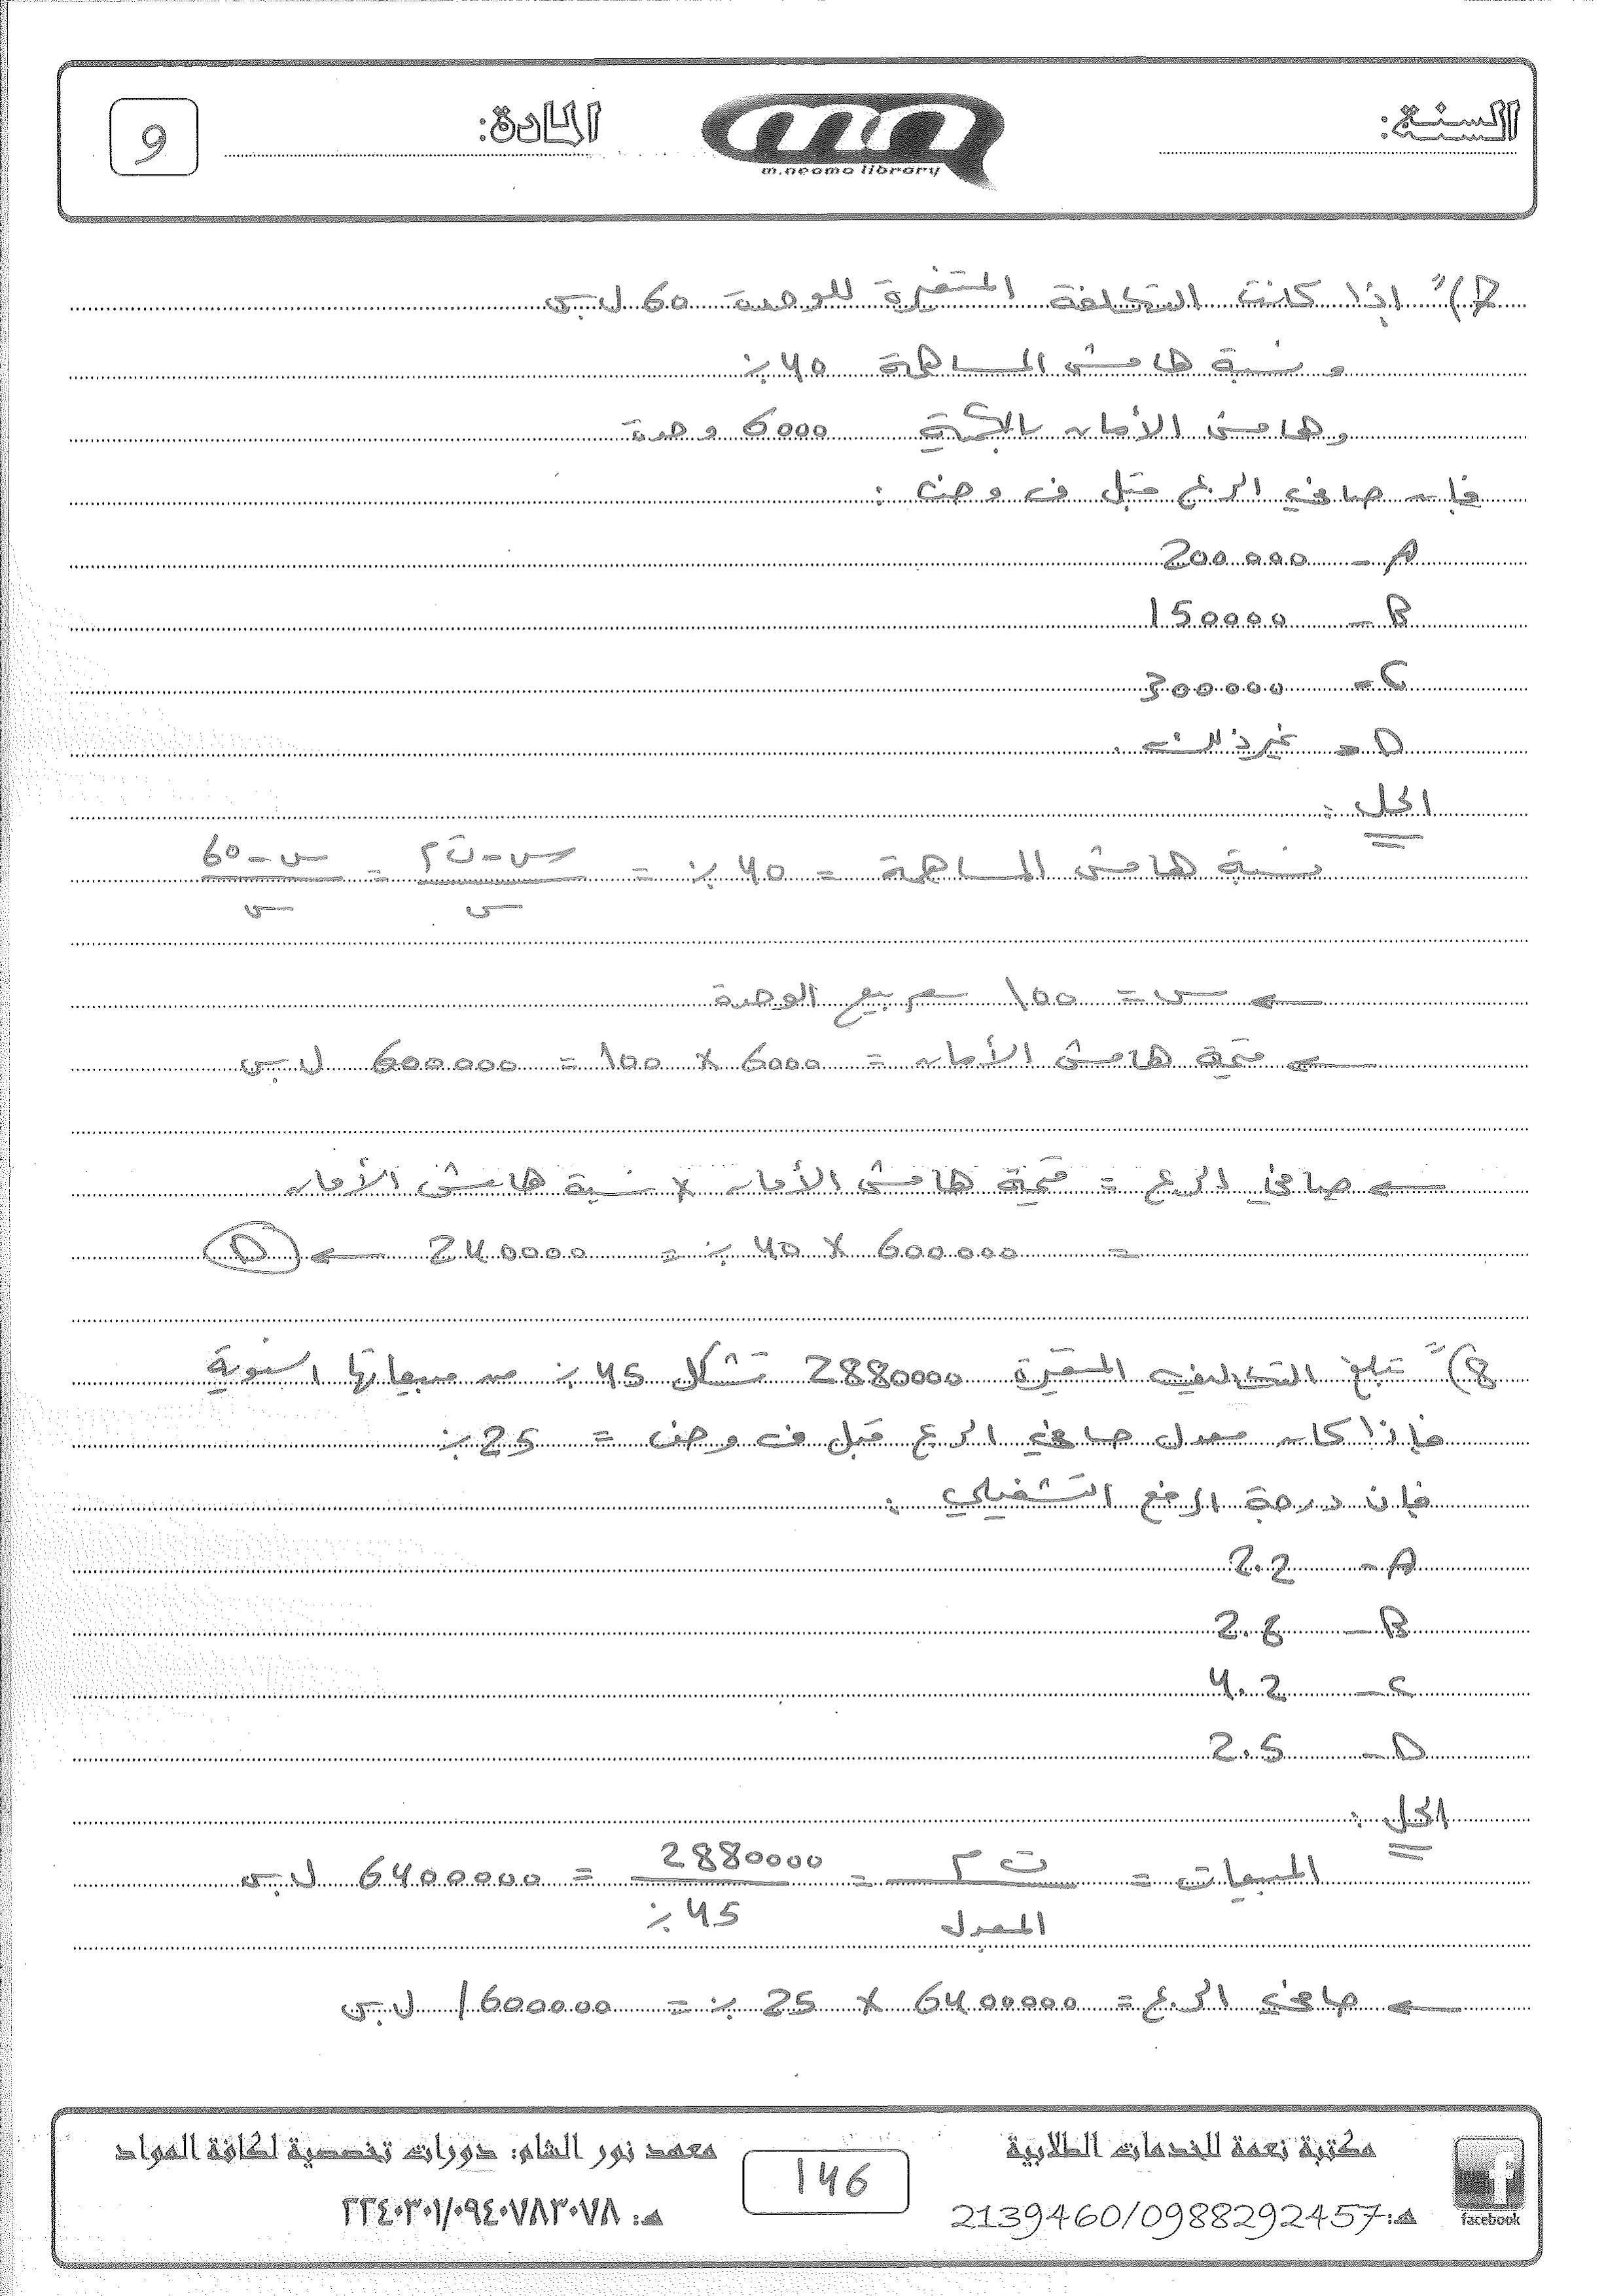 السنة:
m.neama library
المادة:
9
7)" إذا كانت التكلفة المتغيرة للوحدة 60 ل.س
و نسبة هامش المساهمة 40 %
وهامش الأمان بالكمية 6000 وحدة
فإن صافي الربح قبل ف وض :
A - 200000
B - 150000
C - 300000
D - غير ذلك .
الحل :
نسبة هامش المساهمة = 40 % = س - ت م / س = س - 60 / س
← س = 100 سعر بيع الوحدة
← قيمة هامش الأمان = 6000 × 100 = 600000 ل.س
← صافي الربح = قيمة هامش الأمان × نسبة هامش الأمان
= 600000 × 40 % = 240000 ← D
8)" تبلغ التكاليف المتغيرة 2880000 تشكل 45 % من مبيعاتها السنوية
فإذا كان معدل صافي الربح قبل ف وض = 25 %
فإن درجة الرفع التشغيلي :
A - 2.2
B - 2.6
C - 4.2
D - 2.5
الحل :
المبيعات = ت م / المعدل = 2880000 / 45 % = 6400000 ل.س
← صافي الربح = 6400000 × 25 % = 1600000 ل.س
مكتبة نعمة للخدمات الطلابية
هـ: 2139460/0988292457
facebook
146
معهد نور الشام: دورات تخصصية لكافة المواد
هـ: ٢٢٤٠٣٠١/٠٩٤٠٧٨٣٠٧٨